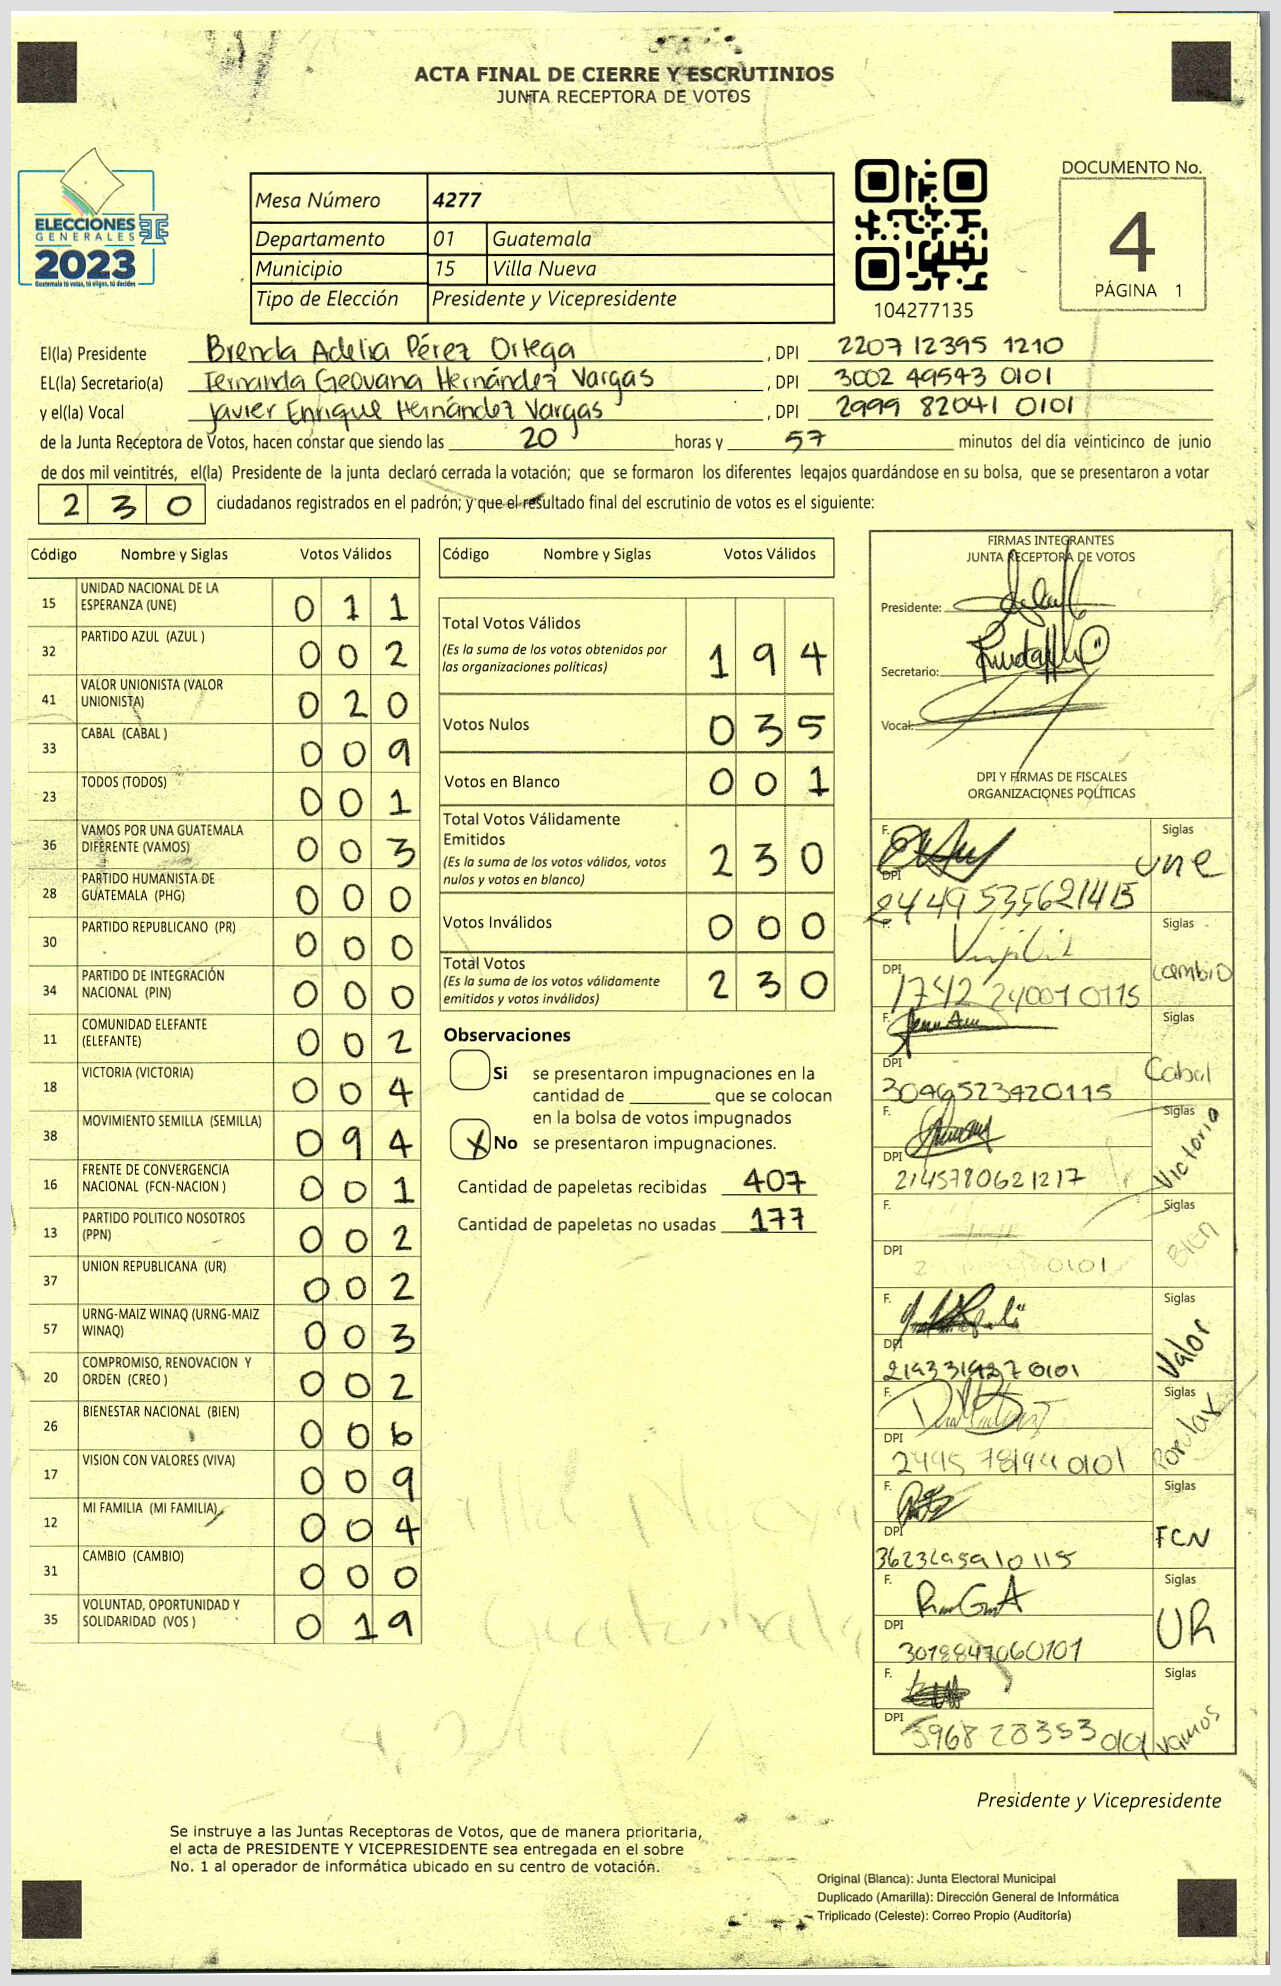 ACTA FINAL DE CIERRE Y ESCRUTINIOS
JUNTA RECEPTORA DE VOTOS
ELECCIONES
GENERALES
2023
Guatemala tú votas, tú eliges, tú decides
Mesa Número 4277
Departamento 01 Guatemala
Municipio 15 Villa Nueva
Tipo de Elección Presidente y Vicepresidente
104277135
DOCUMENTO No.
4
PÁGINA 1
El(la) Presidente Brenda Adelia Pérez Ortega , DPI 2207 12395 1210
EL(la) Secretario(a) Fernanda Geovana Hernández Vargas , DPI 3002 49543 0101
y el(la) Vocal Javier Enrique Hernández Vargas , DPI 2999 82041 0101
de la Junta Receptora de Votos, hacen constar que siendo las 20 horas y 57 minutos del día veinticinco de junio
de dos mil veintitrés, el(la) Presidente de la junta declaró cerrada la votación; que se formaron los diferentes legajos quardándose en su bolsa, que se presentaron a votar
2 3 0 ciudadanos registrados en el padrón; y que el resultado final del escrutinio de votos es el siguiente:
Código Nombre y Siglas Votos Válidos
15 UNIDAD NACIONAL DE LA ESPERANZA (UNE) 0 1 1
32 PARTIDO AZUL (AZUL ) 0 0 2
41 VALOR UNIONISTA (VALOR UNIONISTA) 0 2 0
33 CABAL (CABAL ) 0 0 9
23 TODOS (TODOS) 0 0 1
36 VAMOS POR UNA GUATEMALA DIFERENTE (VAMOS) 0 0 3
28 PARTIDO HUMANISTA DE GUATEMALA (PHG) 0 0 0
30 PARTIDO REPUBLICANO (PR) 0 0 0
34 PARTIDO DE INTEGRACIÓN NACIONAL (PIN) 0 0 0
11 COMUNIDAD ELEFANTE (ELEFANTE) 0 0 2
18 VICTORIA (VICTORIA) 0 0 4
38 MOVIMIENTO SEMILLA (SEMILLA) 0 9 4
16 FRENTE DE CONVERGENCIA NACIONAL (FCN-NACION ) 0 0 1
13 PARTIDO POLITICO NOSOTROS (PPN) 0 0 2
37 UNION REPUBLICANA (UR) 0 0 2
57 URNG-MAIZ WINAQ (URNG-MAIZ WINAQ) 0 0 3
20 COMPROMISO, RENOVACION Y ORDEN (CREO ) 0 0 2
26 BIENESTAR NACIONAL (BIEN) 0 0 6
17 VISION CON VALORES (VIVA) 0 0 9
12 MI FAMILIA (MI FAMILIA) 0 0 4
31 CAMBIO (CAMBIO) 0 0 0
35 VOLUNTAD, OPORTUNIDAD Y SOLIDARIDAD (VOS ) 0 1 9
Código Nombre y Siglas Votos Válidos
Total Votos Válidos
(Es la suma de los votos obtenidos por
las organizaciones políticas) 1 9 4
Votos Nulos 0 3 5
Votos en Blanco 0 0 1
Total Votos Válidamente
Emitidos
(Es la suma de los votos válidos, votos
nulos y votos en blanco) 2 3 0
Votos Inválidos 0 0 0
Total Votos
(Es la suma de los votos válidamente
emitidos y votos inválidos) 2 3 0
Observaciones
Si se presentaron impugnaciones en la
cantidad de ________ que se colocan
en la bolsa de votos impugnados
X No se presentaron impugnaciones.
Cantidad de papeletas recibidas 407
Cantidad de papeletas no usadas 177
FIRMAS INTEGRANTES
JUNTA RECEPTORA DE VOTOS
Presidente:
Secretario:
Vocal:
DPI Y FIRMAS DE FISCALES
ORGANIZACIONES POLÍTICAS
F. Siglas une
DPI 2449 535621415
F. Siglas cambio
DPI 1742 24001 0115
F. Siglas Cabal
DPI 3049523420115
F. Siglas Victoria
DPI 2145780621217
F. Siglas BIEN
DPI 0101
F. Siglas Valor
DPI 2193319270101
F. Siglas
DPI 2495 78194 0101
F. Siglas FCN
DPI
F. Siglas UR
DPI 3018847060101
F. Siglas vamos
DPI 3968 28353 0101
Villa Nueva
Guatemala
Presidente y Vicepresidente
Se instruye a las Juntas Receptoras de Votos, que de manera prioritaria,
el acta de PRESIDENTE Y VICEPRESIDENTE sea entregada en el sobre
No. 1 al operador de informática ubicado en su centro de votación.
Original (Blanca): Junta Electoral Municipal
Duplicado (Amarilla): Dirección General de Informática
Triplicado (Celeste): Correo Propio (Auditoría)